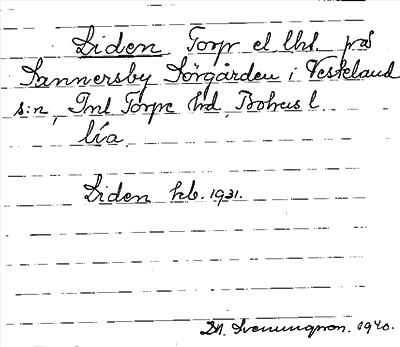 Liden Torp el lht. på
Sannersby Sörgården i Vesteland
s:n, Inl Torpe hd, Bohus l.
lía
Liden hb. 1931.
D.A. Svenungson. 1940.